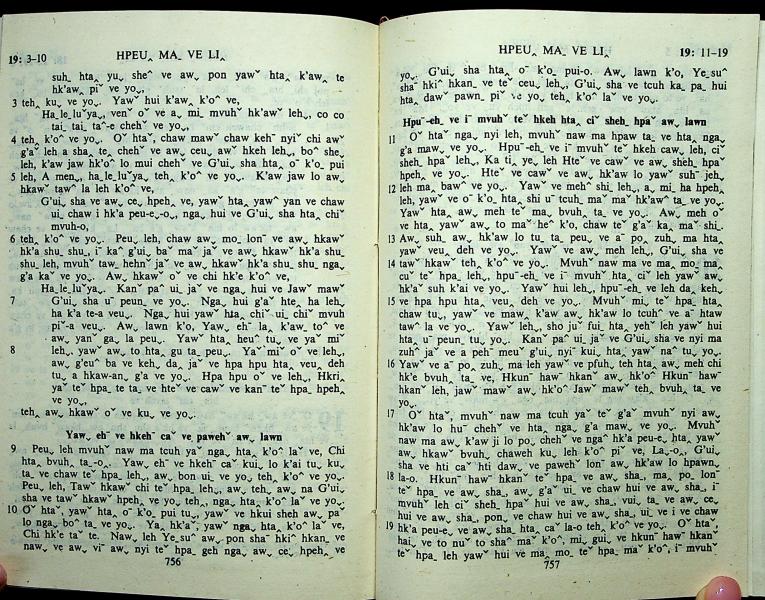 19: 3-10
HPEUꞈ MA_ VE LIꞈ
suhˬ htaꞈ yuˬ she^ ve awˬ pon yawˇ htaꞈ k'awꞈ te
hk'awꞈ piˇ ve yoˬ.
3 tehꞈ kuˬ ve yoˬ. Yawˇ hui k'awꞈ k'o^ ve,
Haˬleˬluˇya, venˇ oˇ ve aˬ miˬ mvuhˇ hk'awˇ lehˬ, co co
taiˬ taiˬ ta^-e chehˇ ve yoˬ,
4 tehꞈ k'o^ ve yoˬ. Oˇ htaꞈ, chaw mawˇ chaw kehˇ nyiˇ chi awˇ
g'aˇ leh a shaˬ teꞈ chehˇ ve awˬ ceuˬ awˬ hkeh lehˬ, bo^ she
leh, k'aw jaw hk'o^ lo mui chehˇ ve G'uiˬ sha htaꞈ o^ k'oˬ pui
5 lehˬ, A men, haˬleˬluˇya, tehꞈ k'o^ ve yoˬ. K'aw jaw lo awˬ
hkawˇ taw^ la leh k'o^ ve,
G'uiˬ sha ve awˬ ceˬ hpehꞈ ve, yawˇ htaꞈ yaw^ yan ve chaw
uiˬ chaw i hk'a peu-eˬ-oˬ, ngaˬ hui ve G'uiˬ sha htaꞈ chiˇ
mvuh-o,
6 tehꞈ k'o^ ve yoˬ. Peuˬ leh, chaw awˬ mo_ lonˉ ve awˬ hkawˇ
hk'a shuˬ shuˬ, i^ ka^ g'uiˬ baˇ maˇ jaˇ ve awˬ hkawˇ hk'a
shuˬ leh, mvuhˇ tawꞈ hehnˇ jaˇ ve awˬ hkawˇ hk'a shuˬ shuˬ ngaꞈ
g'a kaˇ ve yoˬ. Awˬ hkawˇ oˇ ve chi hk'e k'o^ ve,
Haˬleˬluˇya. Kan^ pa^ uiˬ jaˇ ve ngaˬ hui ve Jawˇ mawˇ
7 G'uiˬ sha uˉ peunꞈ ve yoˬ. Ngaˬ hui g'a^ hteꞈ ha lehˬ
ha k'a te-a veuˬ. Ngaˬ hui yawˇ htaꞈ chiˇ uiˬ chiˇ mvuh
piˇ-a veuˬ. Awˬ lawn k'o, Yawꞈ ehˇ laꞈ k'aw to^ ve
awˬ yanˇ gaꞈ la peuˬ. Yawˇ htaꞈ heuˇ tuˬ ve yaˇ miˇ
8 lehˬ, yawˇ awˬ to htaꞈ gu taꞈ peuˬ. Yaˇ miˇ oˇ ve lehˬ,
awˬ g'euˇ ba ve kehˬ daˬ jaˇ ve hpa hpu htaꞈ veuˬ deh
tuˬ a hkaw-anˬ g'a ve yoˬ. Hpa hpu oˇ ve lehˬ, Hkriꞈ
yaˇ teˇ hpaˬ te taˬ ve hteˇ ve cawˇ ve kanˇ teˇ hpaˬ hpehꞈ
ve yoˬ,
tehꞈ awˬ hkawˇ oˇ ve kuˬ ve yoˬ.
Yawˬ ehˇ ve hkehˇ caˇ veˬ pawehˇ awˬ lawn
9 Peuˬ leh mvuhˇ naw ma tcuh yaˇ ngaˬ htaꞈ k'o^ laˇ ve, Chi
htaꞈ bvuhˬ ta_-oˬ. Yawˬ ehˇ ve hkehˇ caˇ kuiˬ lo k'ai tuˬ kuˬ
taˬ ve chaw teˇ hpaˬ lehˬ, awˬ bon uiˬ ve yoˬ tehꞈ k'o^ ve yoˬ.
Peuˬ leh, Tawˇ hkawˇ chi teˇ hpaˬ lehˬ, awˬ tehꞈ awˬ na G'uiˬ
sha ve taw hkawˇ hpehꞈ ve yoˬ, tehꞈ ngaˬ htaꞈ k'o^ laˇ ve yoˬ.
10 Oˇ htaˇ, yawˇ htaꞈ o^ k'oˬ pui tuˬ, yawˇ ve hkui sheh awˬ paˇ
lo ngaˬ boˇ taꞈ ve yoˬ. Yaˬ hk'aˇ, yawˇ ngaˬ htaꞈ k'o^ laˇ ve,
Chi hk'e taˇ teꞈ. Nawˬ leh Yeˬsu^ awˬ pon sha^ hki^ hkanꞈ ve
nawˬ ve awˬ viˉ awˬ nyi teˇ hpaˬ geh ngaˬ awˬ ceˬ hpehꞈ ve
756
HPEUꞈ MA_ VE LIꞈ
19: 11-19
yoˬ. G'uiˬ sha htaꞈ o^ k'oˬ pui-o. Awˬ lawn k'o, Yeˬsu^
sha^ hki^ hkanꞈ ve teˇ ceuˬ lehˬ, G'uiˬ sha ve tcuh kaˬ paˬ hui
htaꞈ dawˇ pawnˬ piˇ ve yoˬ tehꞈ k'o^ laˇ ve yoˬ.
Hpuˉ-ehˬ ve i^ mvuhˇ teˇ hkeh htaꞈ ciˇ shehꞈ hpaˇ awˬ lawn
11 Oˇ htaˇ ngaˬ nyi leh, mvuhˇ naw ma hpaw taˬ ve htaꞈ ngaˬ
g'a mawˬ ve yoˬ. Hpuˉ-ehˬ ve i^ mvuhˇ te^ hkeh cawˬ leh, ciˇ
shehꞈ hpaˇ lehˬ, Ka tiˬ yeˬ leh Hteˇ ve cawˇ ve awˬ shehꞈ hpaˇ
hpehꞈ ve yoˬ. Hteˇ ve cawˇ ve awˬ hk'aw lo yawˇ suhˉ jehˬ
12 leh maˬ bawˆ ve yoˬ. Yawˇ ve mehˇ shiˬ lehˬ, aˬ mi_ ha hpehꞈ
leh, yawˇ ve o^ k'oˬ htaꞈ shi uˉ tcuhˬ maˇ maˇ hk'aw^ taꞈ ve yoˬ.
Yawˇ htaꞈ awˬ meh teˇ maˬ bvuhˬ taˬ ve yoˬ. Awˬ meh oˇ
ve htaꞈ yawˇ awˬ to maˇ heˇ k'o, chaw teˇ g'aˇ kaˬ maˇ shiˬ.
13 Awˬ suhˬ awˬ hk'aw lo tuˬ taˬ peuˬ ve aˉ po_ zuhˬ ma htaꞈ
yawˇ veuˬ deh ve yoˬ. Yawˇ ve awˬ meh lehˬ, G'uiˬ sha ve
14 taw hkawˇ tehꞈ k'o^ ve yoˬ. Mvuhˇ naw ma ve ma_ mo_ maꞈ
cuˇ teˇ hpaˬ lehꞈ, hpuˉ-ehˬ ve i^ mvuhˇ htaꞈ ciˇ leh yawˇ awˬ
hk'aˇ suh k'ai ve yoˬ. Yawˇ hui lehꞈ, hpuˉ-ehˬ ve leh daˬ kehˬ
15 ve hpa hpu htaꞈ veuˬ deh ve yoˬ. Mvuhˇ miˬ teˇ hpaˬ htaꞈ
chaw tuˬ, yawˇ ve mawˬ k'aw awˬ hk'aw lo tcuh^ ve aˉ htaw
taw^ la ve yoˬ. Yawˇ lehˬ, sho juˇ fuiˬ htaꞈ yehˇ leh yawˇ hui
htaꞈ uˉ peunꞈ tuˬ yoˬ. Kan^ pa^ uiˬ jaˇ ve G'uiˬ sha ve nyi ma
zuh^ jaˇ ve a peh^ meuˇ g'uiˬ nyiˇ kuiˬ htaꞈ yawˇ naˇ tuˬ yoˬ.
16 Yawˇ ve aˉ po_ zuhˬ ma leh yawˇ ve pfuhˬ teh htaꞈ, awˬ meh chi
hk'e bvuhꞈ taˬ ve, Hkunˇ hawˇ hkanˇ awˬ hk'o^ Hkunˇ hawˇ
hkanˇ leh, jawˇ mawˇ awˬ hk'o^ Jawˇ mawˇ tehꞈ bvuhꞈ taˬ ve
yoˬ.
17 Oˇ htaˇ, mvuhˇ naw ma tcuh yaˇ teˇ g'aˇ mvuhˇ nyi awˬ
hk'aw lo huˉ chehˇ ve htaꞈ ngaˬ g'a mawˬ ve yoˬ. Mvuhˇ
naw ma awˬ k'aw ji lo poˬ chehˇ ve ngaˇ hk'a peu-e htaꞈ yawˇ
awˬ hkawˇ bvuhꞈ chaweh kuˬ leh k'o^ piˇ ve, Laˬ-oˬ, G'uiˬ
sha ve hti caˇ hti daw ve pawehˇ lonˉ awˬ hk'aw lo hpawnꞈ
18 la-o. Hkunˇ hawˇ hkanˇ teˇ hpaˬ ve awˬ shaˬ, ma_ po_ lonˉ
teˇ hpaˬ ve awˬ shaˬ, awˬ g'aˇ uiˬ ve chaw hui ve awˬ shaˬ, i^
mvuhˇ leh ciˇ shehꞈ hpaˇ hui ve awˬ shaˬ, vuiˬ taˬ ve awˬ ceˬ
hui ve awˬ shaˬ, ponˬ ve chaw hui ve awˬ shaˬ, uiˬ ve i ve chaw
19 hk'a peu-eˬ ve awˬ shaˬ htaꞈ caˇ la-o tehꞈ k'o^ ve yoˬ. Oˇ htaˇ,
haiˬ ve to nuˇ to shaˇ maˇ k'o^, miˬ guiˬ ve hkunˇ hawˇ hkanˇ
teˇ hpaˬ leh yawˇ hui ve ma_ mo_ teˇ hpaˬ maˇ k'o^, i^ mvuhˇ
757